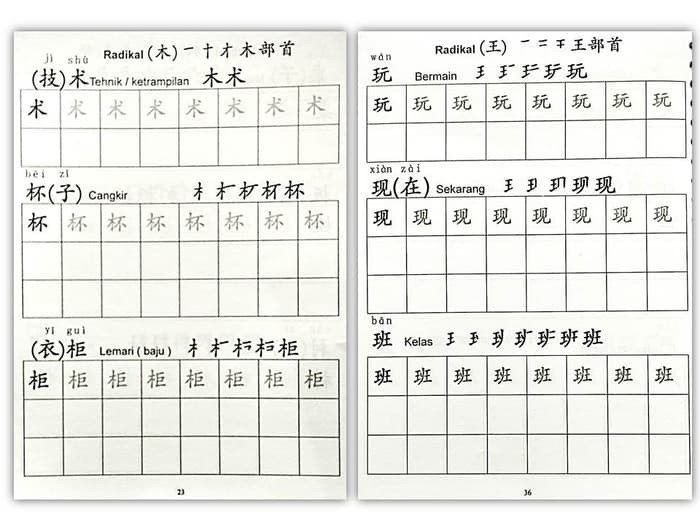 Radikal (木) 一 十 才 木 部 首
jì shù
(技)术 Tehnik / ketrampilan 木 术
术 术 术 术 术 术 术 术
bēi zǐ
杯(子) Cangkir 杯
杯 杯 杯 杯 杯 杯 杯 杯
yī guì
(衣)柜 Lemari ( baju ) 柜
柜 柜 柜 柜 柜 柜 柜 柜
23
Radikal (王) 一 二 干 王 部 首
wán
玩 Bermain 玩
玩 玩 玩 玩 玩 玩 玩 玩
xiàn zài
现(在) Sekarang 现
现 现 现 现 现 现 现 现
bān
班 Kelas 班
班 班 班 班 班 班 班 班
36